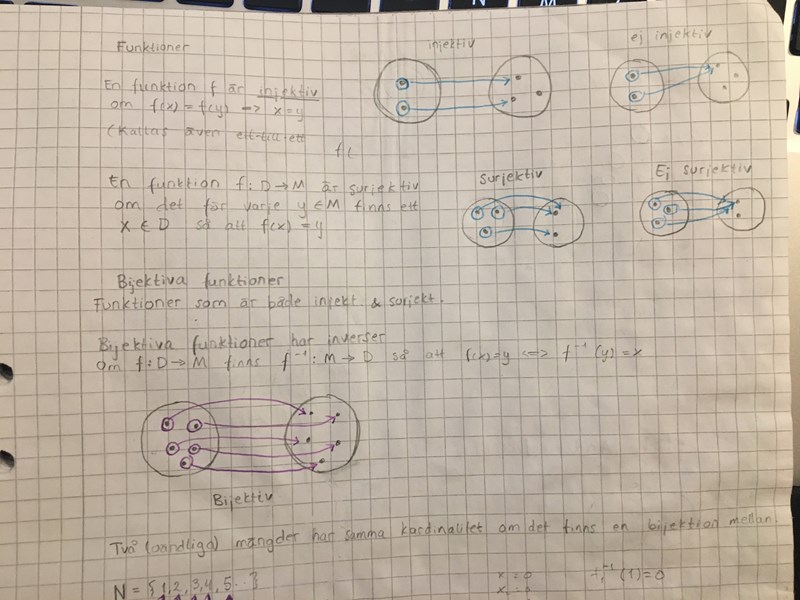 Funktioner
injektiv
ej injektiv
En funktion f är injektiv
om f(x) = f(y) → x=y
(Kallas även ett-till-ett
f(
En funktion f: D→M är surjektiv
om det för varje y ∈ M finns ett
x ∈ D så att f(x) = y
Surjektiv
Ej surjektiv
Bijektiva funktioner
Funktioner som är både injekt & surjekt.
Bijektiva funktioner har inverser
om f: D→M finns f⁻¹: M→D så att f(x)=y <=> f⁻¹(y)=x
Bijektiv
Två (oändliga) mängder har samma kardinalitet om det finns en bijektion mellan.
N = {1,2,3,4,5...}
x₁=0
⁻¹(1)=0